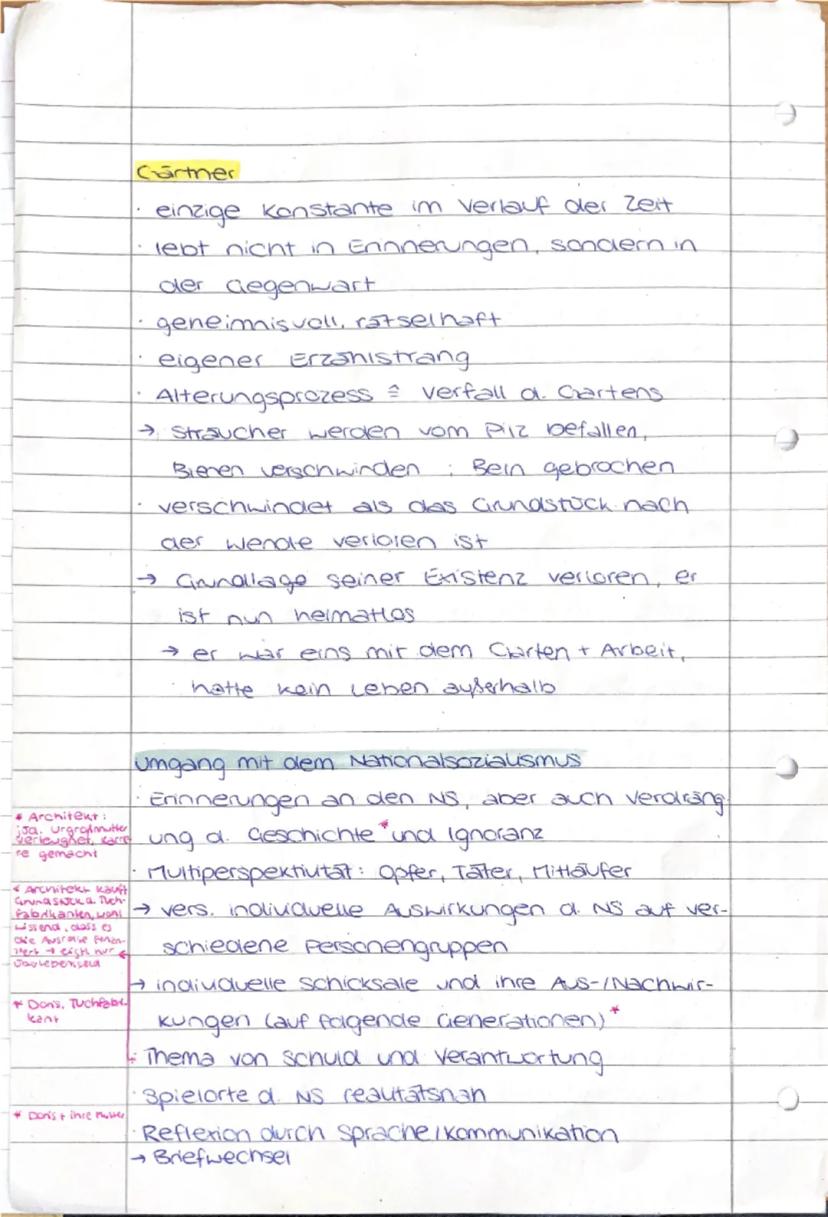 Gärtner
· einzige Konstante im Verlauf der Zeit
· lebt nicht in Erinnerungen, sondern in
der Gegenwart
· geheimnisvoll, rätselhaft
· eigener Erzählstrang
· Alterungsprozess ≙ Verfall d. Gartens
→ Sträucher werden vom Pilz befallen,
Bienen verschwinden ; Bein gebrochen
· verschwindet als das Grundstück nach
der Wende verloren ist
→ Grundlage seiner Existenz verloren, er
ist nun heimatlos
→ er war eins mit dem Garten + Arbeit,
hatte kein Leben außerhalb
Umgang mit dem Nationalsozialismus
· Erinnerungen an den NS, aber auch Verdräng-
ung d. Geschichte* und Ignoranz
· Multiperspektivität: Opfer, Täter, Mitläufer
→ vers. individuelle Auswirkungen d. NS auf ver-
schiedene Personengruppen
→ individuelle Schicksale und ihre Aus-/Nachwir-
kungen (auf folgende Generationen)*
· Thema von Schuld und Verantwortung
· Spielorte d. NS realitätsnah
· Reflexion durch Sprache/Kommunikation
→ Briefwechsel
* Architekt:
jüd. Urgroßmutter
verleugnet, Karrie-
re gemacht
* Architekt kauft
Grundstück d. Tuch-
fabrikanten, wohl
wissend, dass es
die Ausreise finan-
ziert → nur
* Doris, Tuchfabri-
kant
* Doris + ihre Mutter